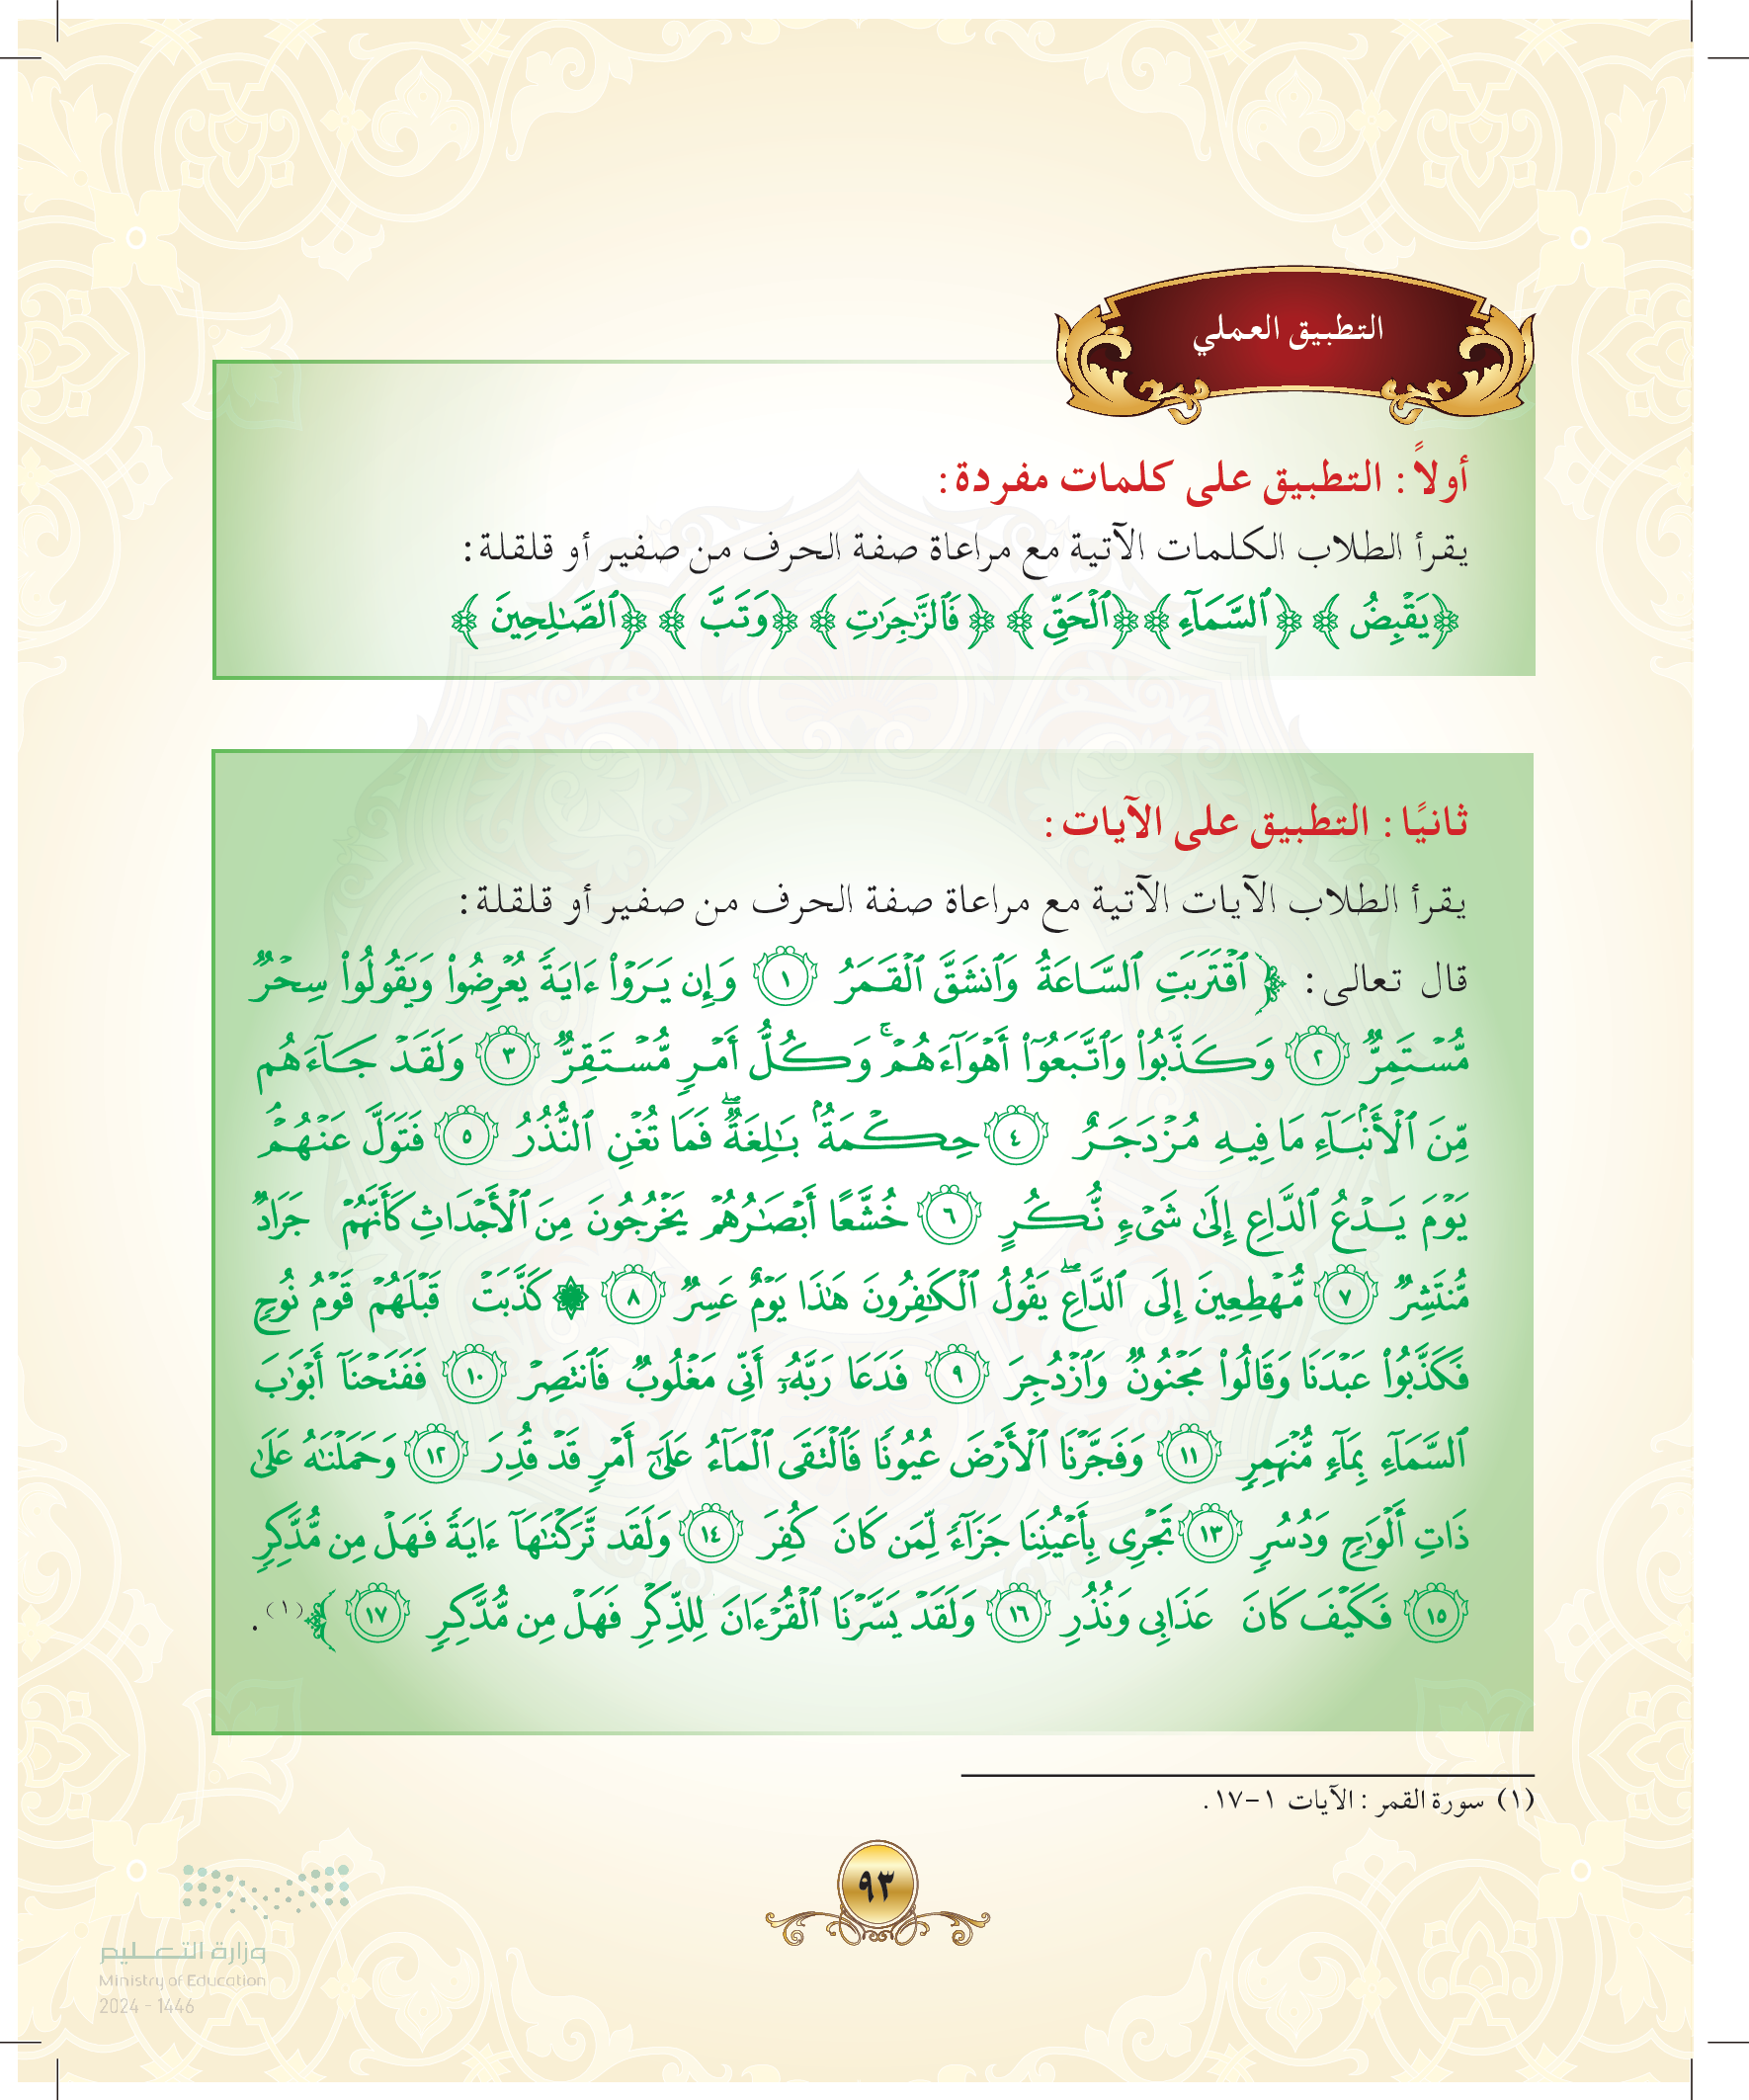 التطبيق العملي
أولاً : التطبيق على كلمات مفردة:
يقرأ الطلاب الكلمات الآتية مع مراعاة صفة الحرف من صفير أو قلقلة:
﴿يَقْبِضُ﴾ ﴿ٱلسَّمَآءِ﴾ ﴿ٱلْحَقِّ﴾ ﴿فَٱلزَّٰجِرَٰتِ﴾ ﴿وَتَبَّ﴾ ﴿ٱلصَّٰلِحِينَ﴾
ثانيًا : التطبيق على الآيات:
يقرأ الطلاب الآيات الآتية مع مراعاة صفة الحرف من صفير أو قلقلة:
قال تعالى: ﴿ٱقْتَرَبَتِ ٱلسَّاعَةُ وَٱنشَقَّ ٱلْقَمَرُ ١ وَإِن يَرَوْا۟ ءَايَةً يُعْرِضُوا۟ وَيَقُولُوا۟ سِحْرٌ
مُّسْتَمِرٌّ ٢ وَكَذَّبُوا۟ وَٱتَّبَعُوٓا۟ أَهْوَآءَهُمْ ۚ وَكُلُّ أَمْرٍ مُّسْتَقِرٌّ ٣ وَلَقَدْ جَآءَهُم
مِّنَ ٱلْأَنۢبَآءِ مَا فِيهِ مُزْدَجَرٌ ٤ حِكْمَةٌۢ بَٰلِغَةٌ ۖ فَمَا تُغْنِ ٱلنُّذُرُ ٥ فَتَوَلَّ عَنْهُمْ ۘ
يَوْمَ يَدْعُ ٱلدَّاعِ إِلَىٰ شَىْءٍ نُّكُرٍ ٦ خُشَّعًا أَبْصَٰرُهُمْ يَخْرُجُونَ مِنَ ٱلْأَجْدَاثِ كَأَنَّهُمْ جَرَادٌ
مُّنتَشِرٌ ٧ مُّهْطِعِينَ إِلَى ٱلدَّاعِ ۖ يَقُولُ ٱلْكَٰفِرُونَ هَٰذَا يَوْمٌ عَسِرٌ ٨ ۞ كَذَّبَتْ قَبْلَهُمْ قَوْمُ نُوحٍ
فَكَذَّبُوا۟ عَبْدَنَا وَقَالُوا۟ مَجْنُونٌ وَٱزْدُجِرَ ٩ فَدَعَا رَبَّهُۥٓ أَنِّى مَغْلُوبٌ فَٱنتَصِرْ ١٠ فَفَتَحْنَآ أَبْوَٰبَ
ٱلسَّمَآءِ بِمَآءٍ مُّنْهَمِرٍ ١١ وَفَجَّرْنَا ٱلْأَرْضَ عُيُونًا فَٱلْتَقَى ٱلْمَآءُ عَلَىٰٓ أَمْرٍ قَدْ قُدِرَ ١٢ وَحَمَلْنَٰهُ عَلَىٰ
ذَاتِ أَلْوَٰحٍ وَدُسُرٍ ١٣ تَجْرِى بِأَعْيُنِنَا جَزَآءً لِّمَن كَانَ كُفِرَ ١٤ وَلَقَد تَّرَكْنَٰهَآ ءَايَةً فَهَلْ مِن مُّدَّكِرٍ
١٥ فَكَيْفَ كَانَ عَذَابِى وَنُذُرِ ١٦ وَلَقَدْ يَسَّرْنَا ٱلْقُرْءَانَ لِلذِّكْرِ فَهَلْ مِن مُّدَّكِرٍ ١٧﴾(١).
(١) سورة القمر : الآيات ١-١٧.
٩٣
وزارة التعليم
Ministry of Education
2024 - 1446